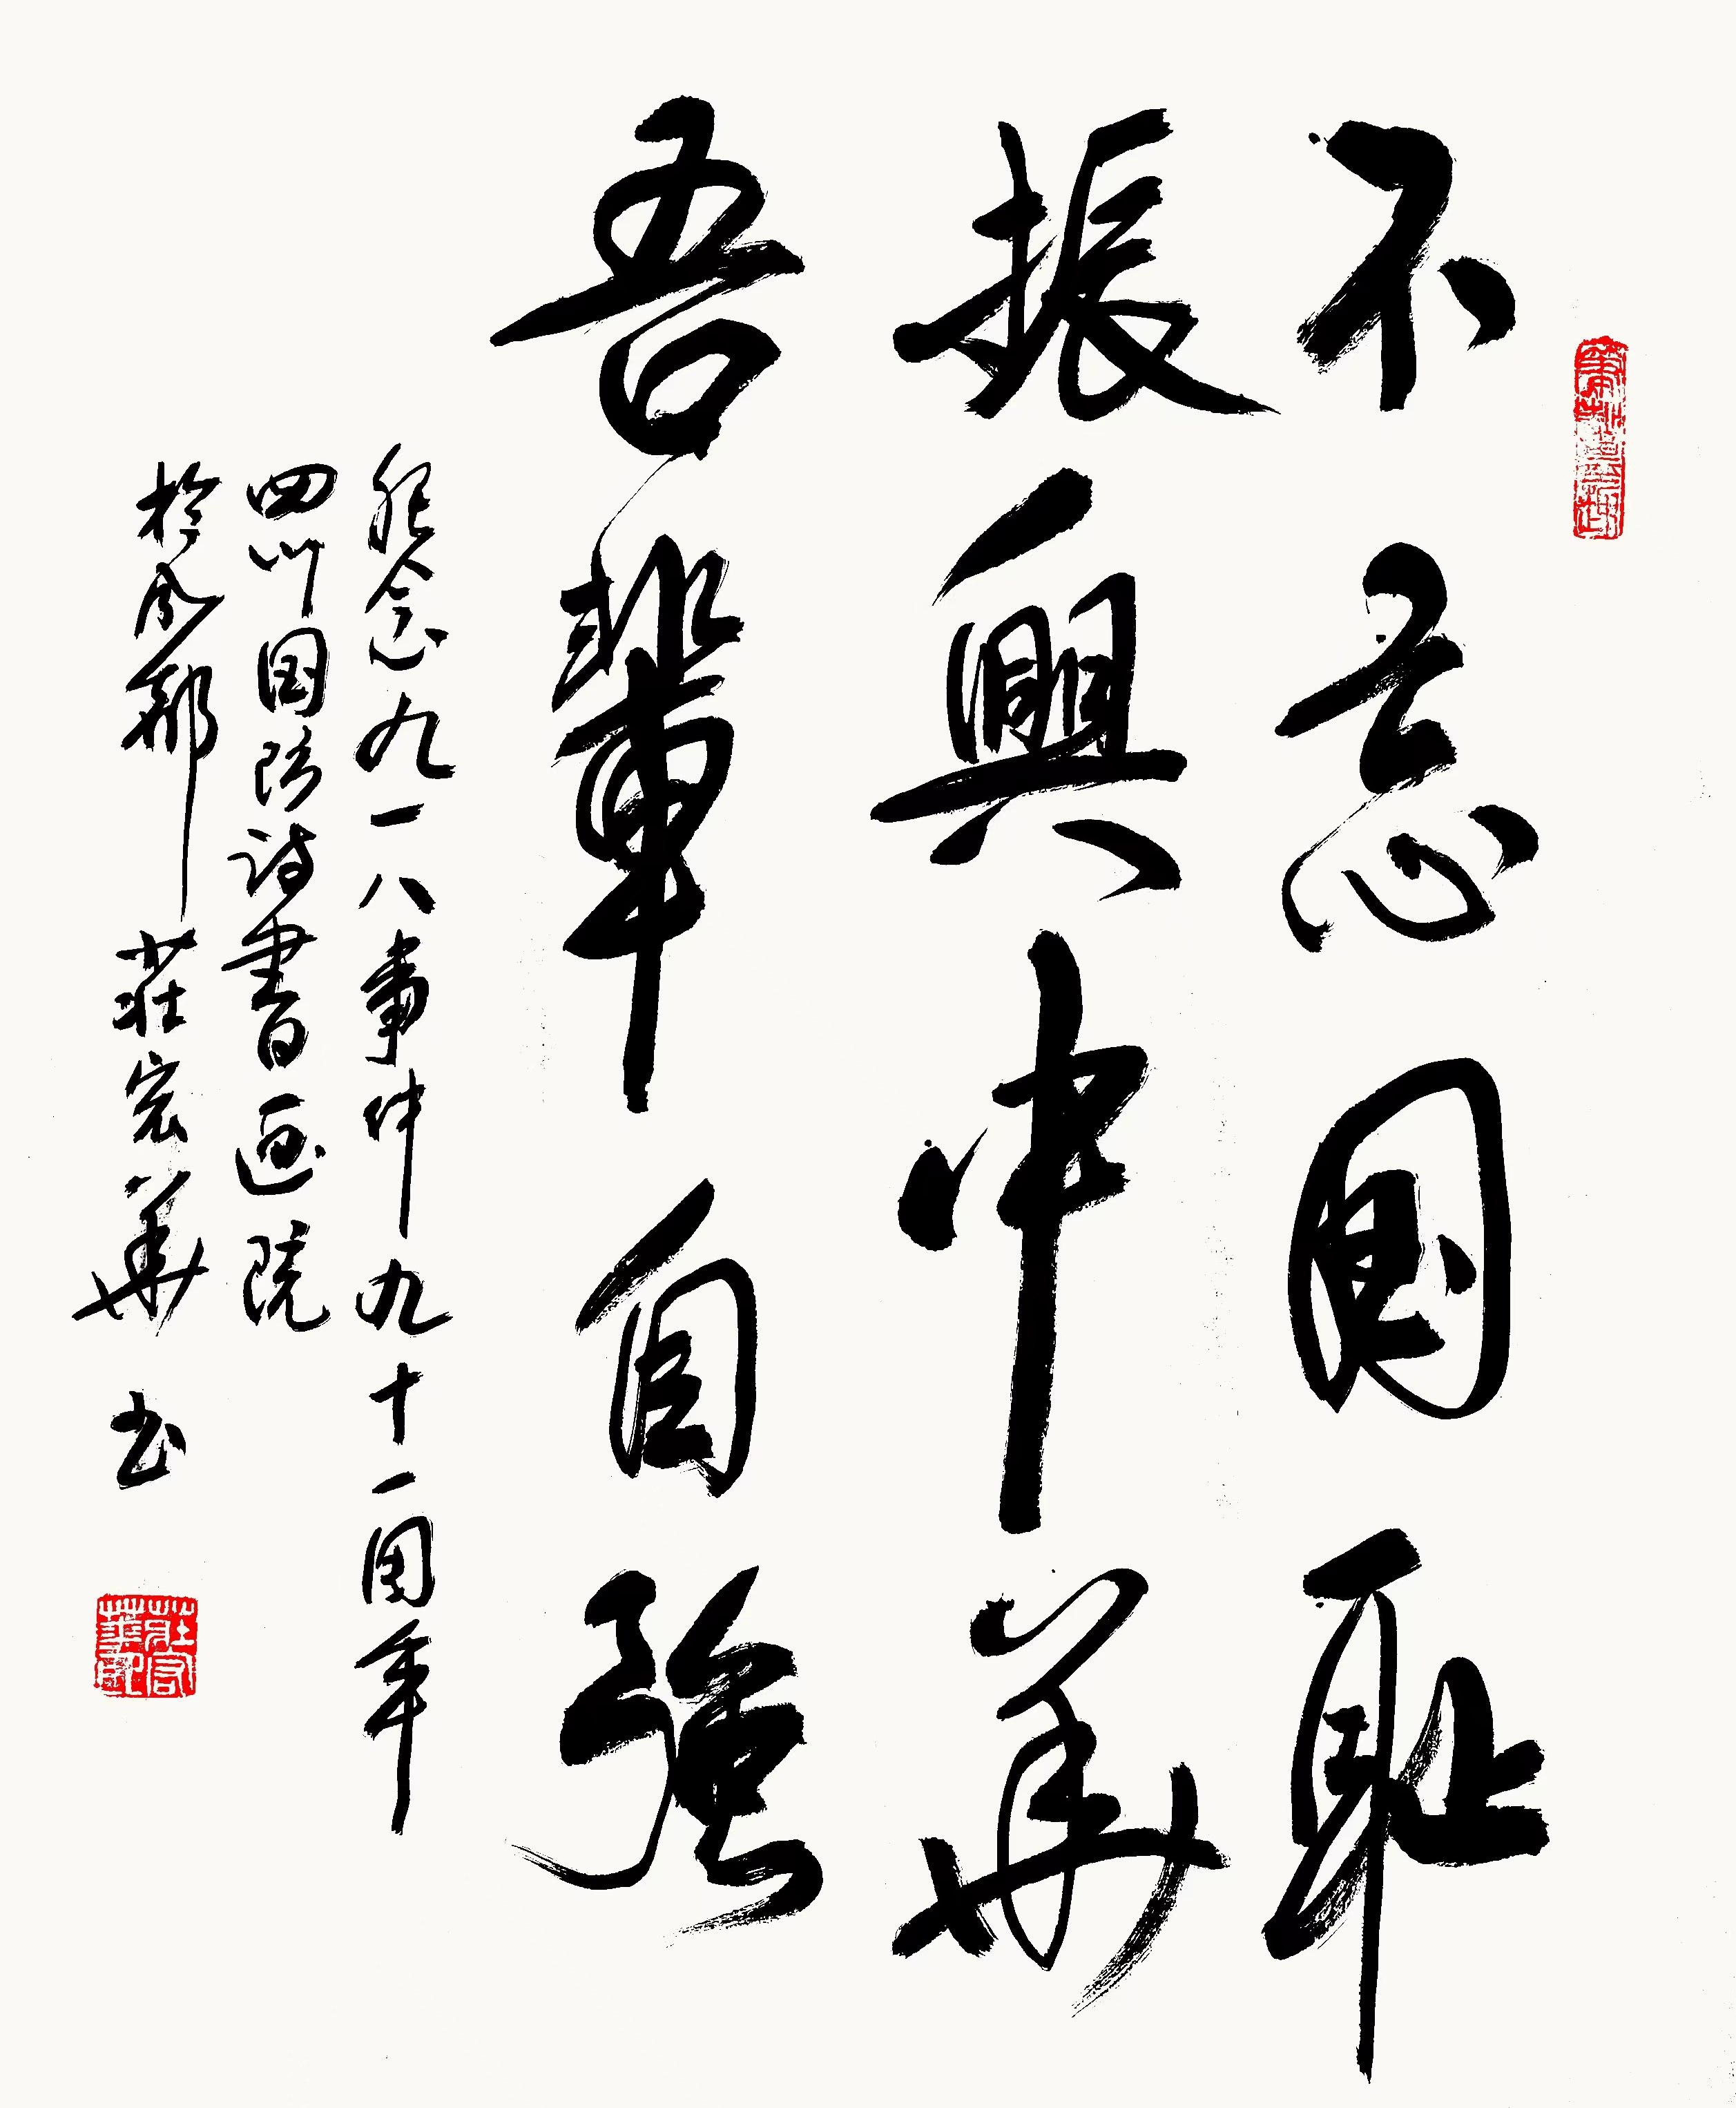 不忘國耻
振興中華
吾輩自強
纪念九一八事件九十一周年
四川国防诗書画院
於成都 莊宏華 书